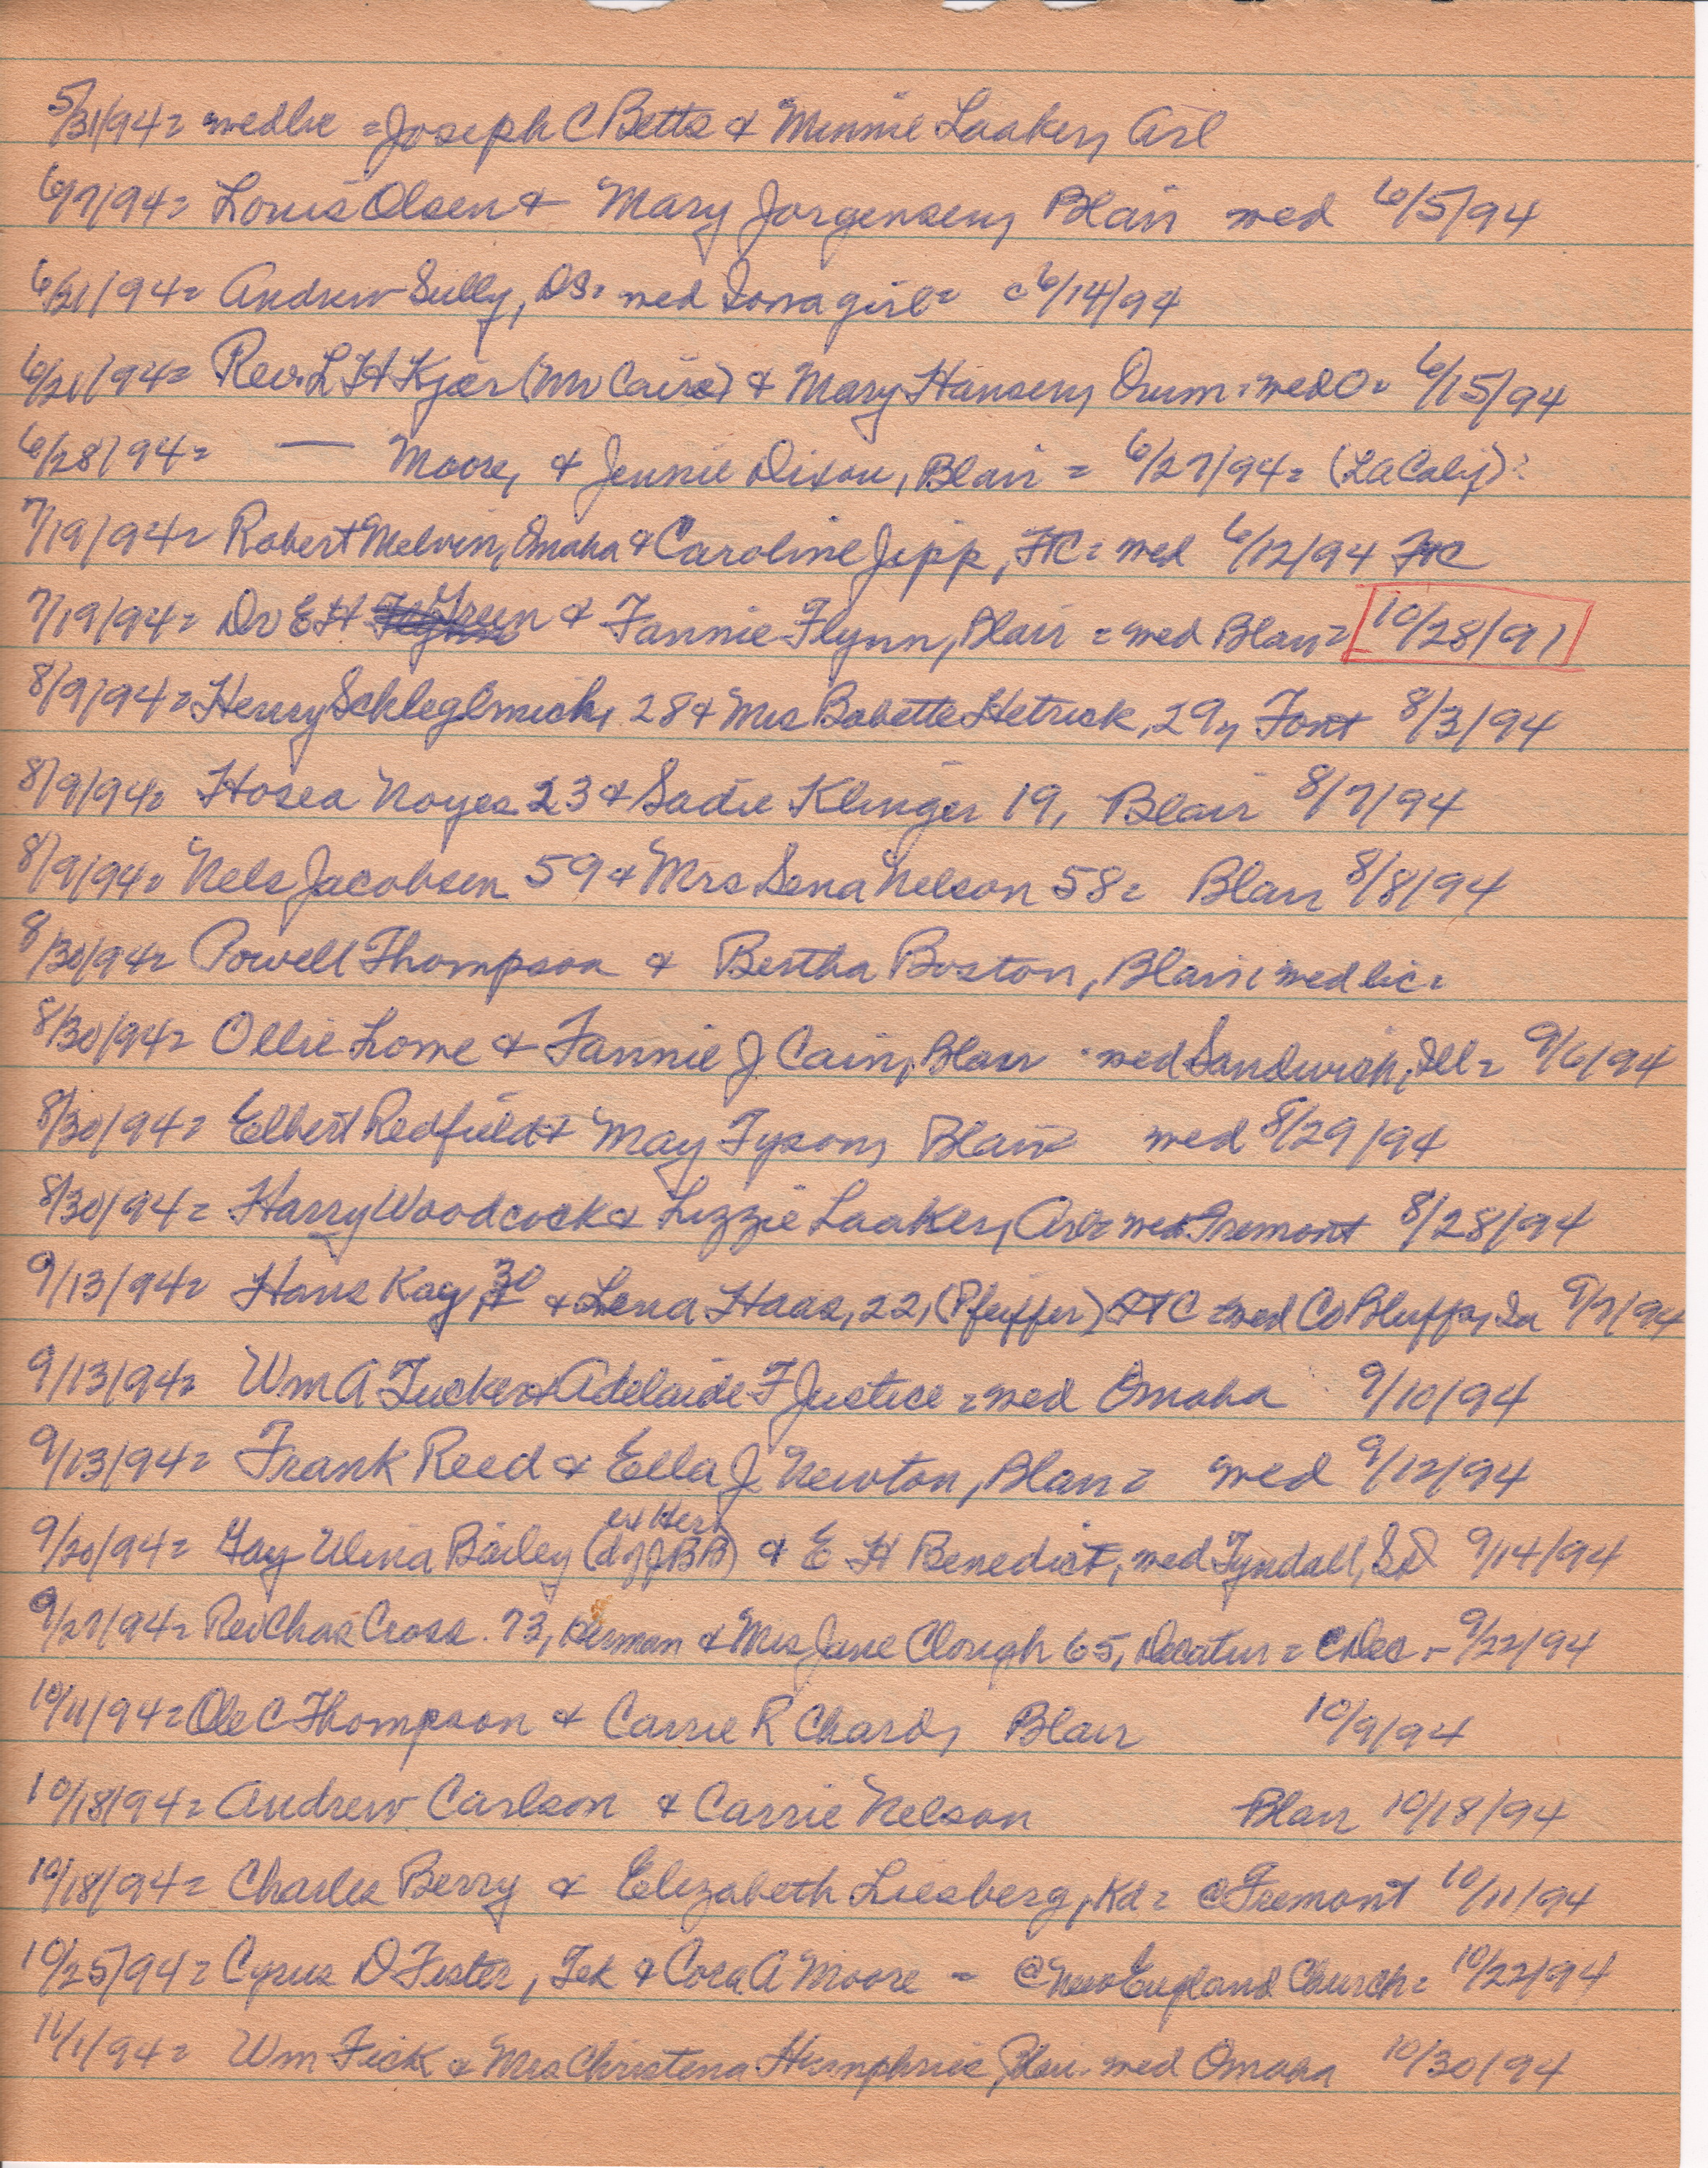 5/31/94= medlic = Joseph C Betts & Minnie Laaker, Arl
6/7/94= Louis Olsen & Mary Jorgensen, Blair med 6/5/94
6/21/94= Andrew Sully, DS= med Iowa girl= c 6/14/94
6/21/94= Rev. L H Kjar (Mr Caire) & Mary Hansen, Orum. med O= 6/15/94
6/28/94= — Moore, & Jennie Dixon, Blair = 6/27/94= (LA Calif)?
7/19/94= Robert Melvin, Omaha & Caroline Jipp, FTC= med 6/12/94 FTC
7/19/94= Dr E H Green & Fannie Flynn, Blair = med Blair= 10/28/91
8/9/94= Henry Schleglmich, 28 & Mrs Babette Hetrick, 29, Font 8/3/94
8/9/94= Hosea Noyes 23 & Sadie Klinger 19, Blair 8/7/94
8/9/94= Nels Jacobsen 59 & Mrs Sena Nelson 58= Blair 8/8/94
8/30/94= Powell Thompson & Bertha Boston, Blair= med lic=
8/30/94= Ollie Lowe & Fannie J Cain, Blair med Sandwich, Ill= 9/6/94
8/30/94= Elbert Redfield & May Tyson, Blair med 8/29/94
8/30/94= Harry Woodcock & Lizzie Laaker, Arl= med Fremont 8/28/94
9/13/94= Hans Kay, 30 & Lena Haas, 22, (Pfeiffer) FTC = med Co Bluffs, Ia 9/7/94
9/13/94= Wm A Tucker & Adelaide F Justice = med Omaha 9/10/94
9/13/94= Frank Reed & Ella J Newton, Blair= med 9/12/94
9/20/94= Gay Ulina Bailey (d of J B B) ex Her & E H Benedict, med Tyndall, SD 9/14/94
9/27/94= Rev Chas Cross. 73, Herman & Mrs Jane Clough 65, Decatur = @ Dec - 9/22/94
10/11/94= Ole C Thompson & Carrie R Chard, Blair 10/9/94
10/18/94= Andrew Carlson & Carrie Nelson Blair 10/18/94
10/18/94= Charles Berry & Elizabeth Liesberg, Kd= @ Fremont 10/11/94
10/25/94= Cyrus D Fester, Tek & Cora A Moore - @ New England Church= 10/22/94
11/1/94= Wm Fick & Mrs Christena Humphries, Blair. med Omaha 10/30/94